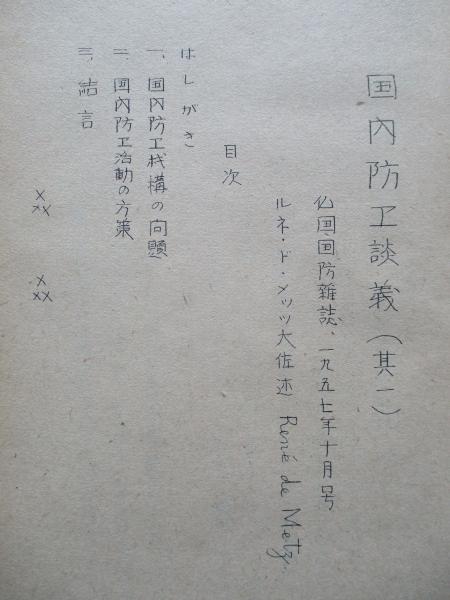 国内防ヱ談義(其一)
仏国国防雑誌、一九五七年十月号
ルネ・ド・メッツ大佐述 René de Metz.
目次
はしがき
一、国内防ヱ机構の向題
二、国内防ヱ活動の方策
三、結言
×
××
×
××